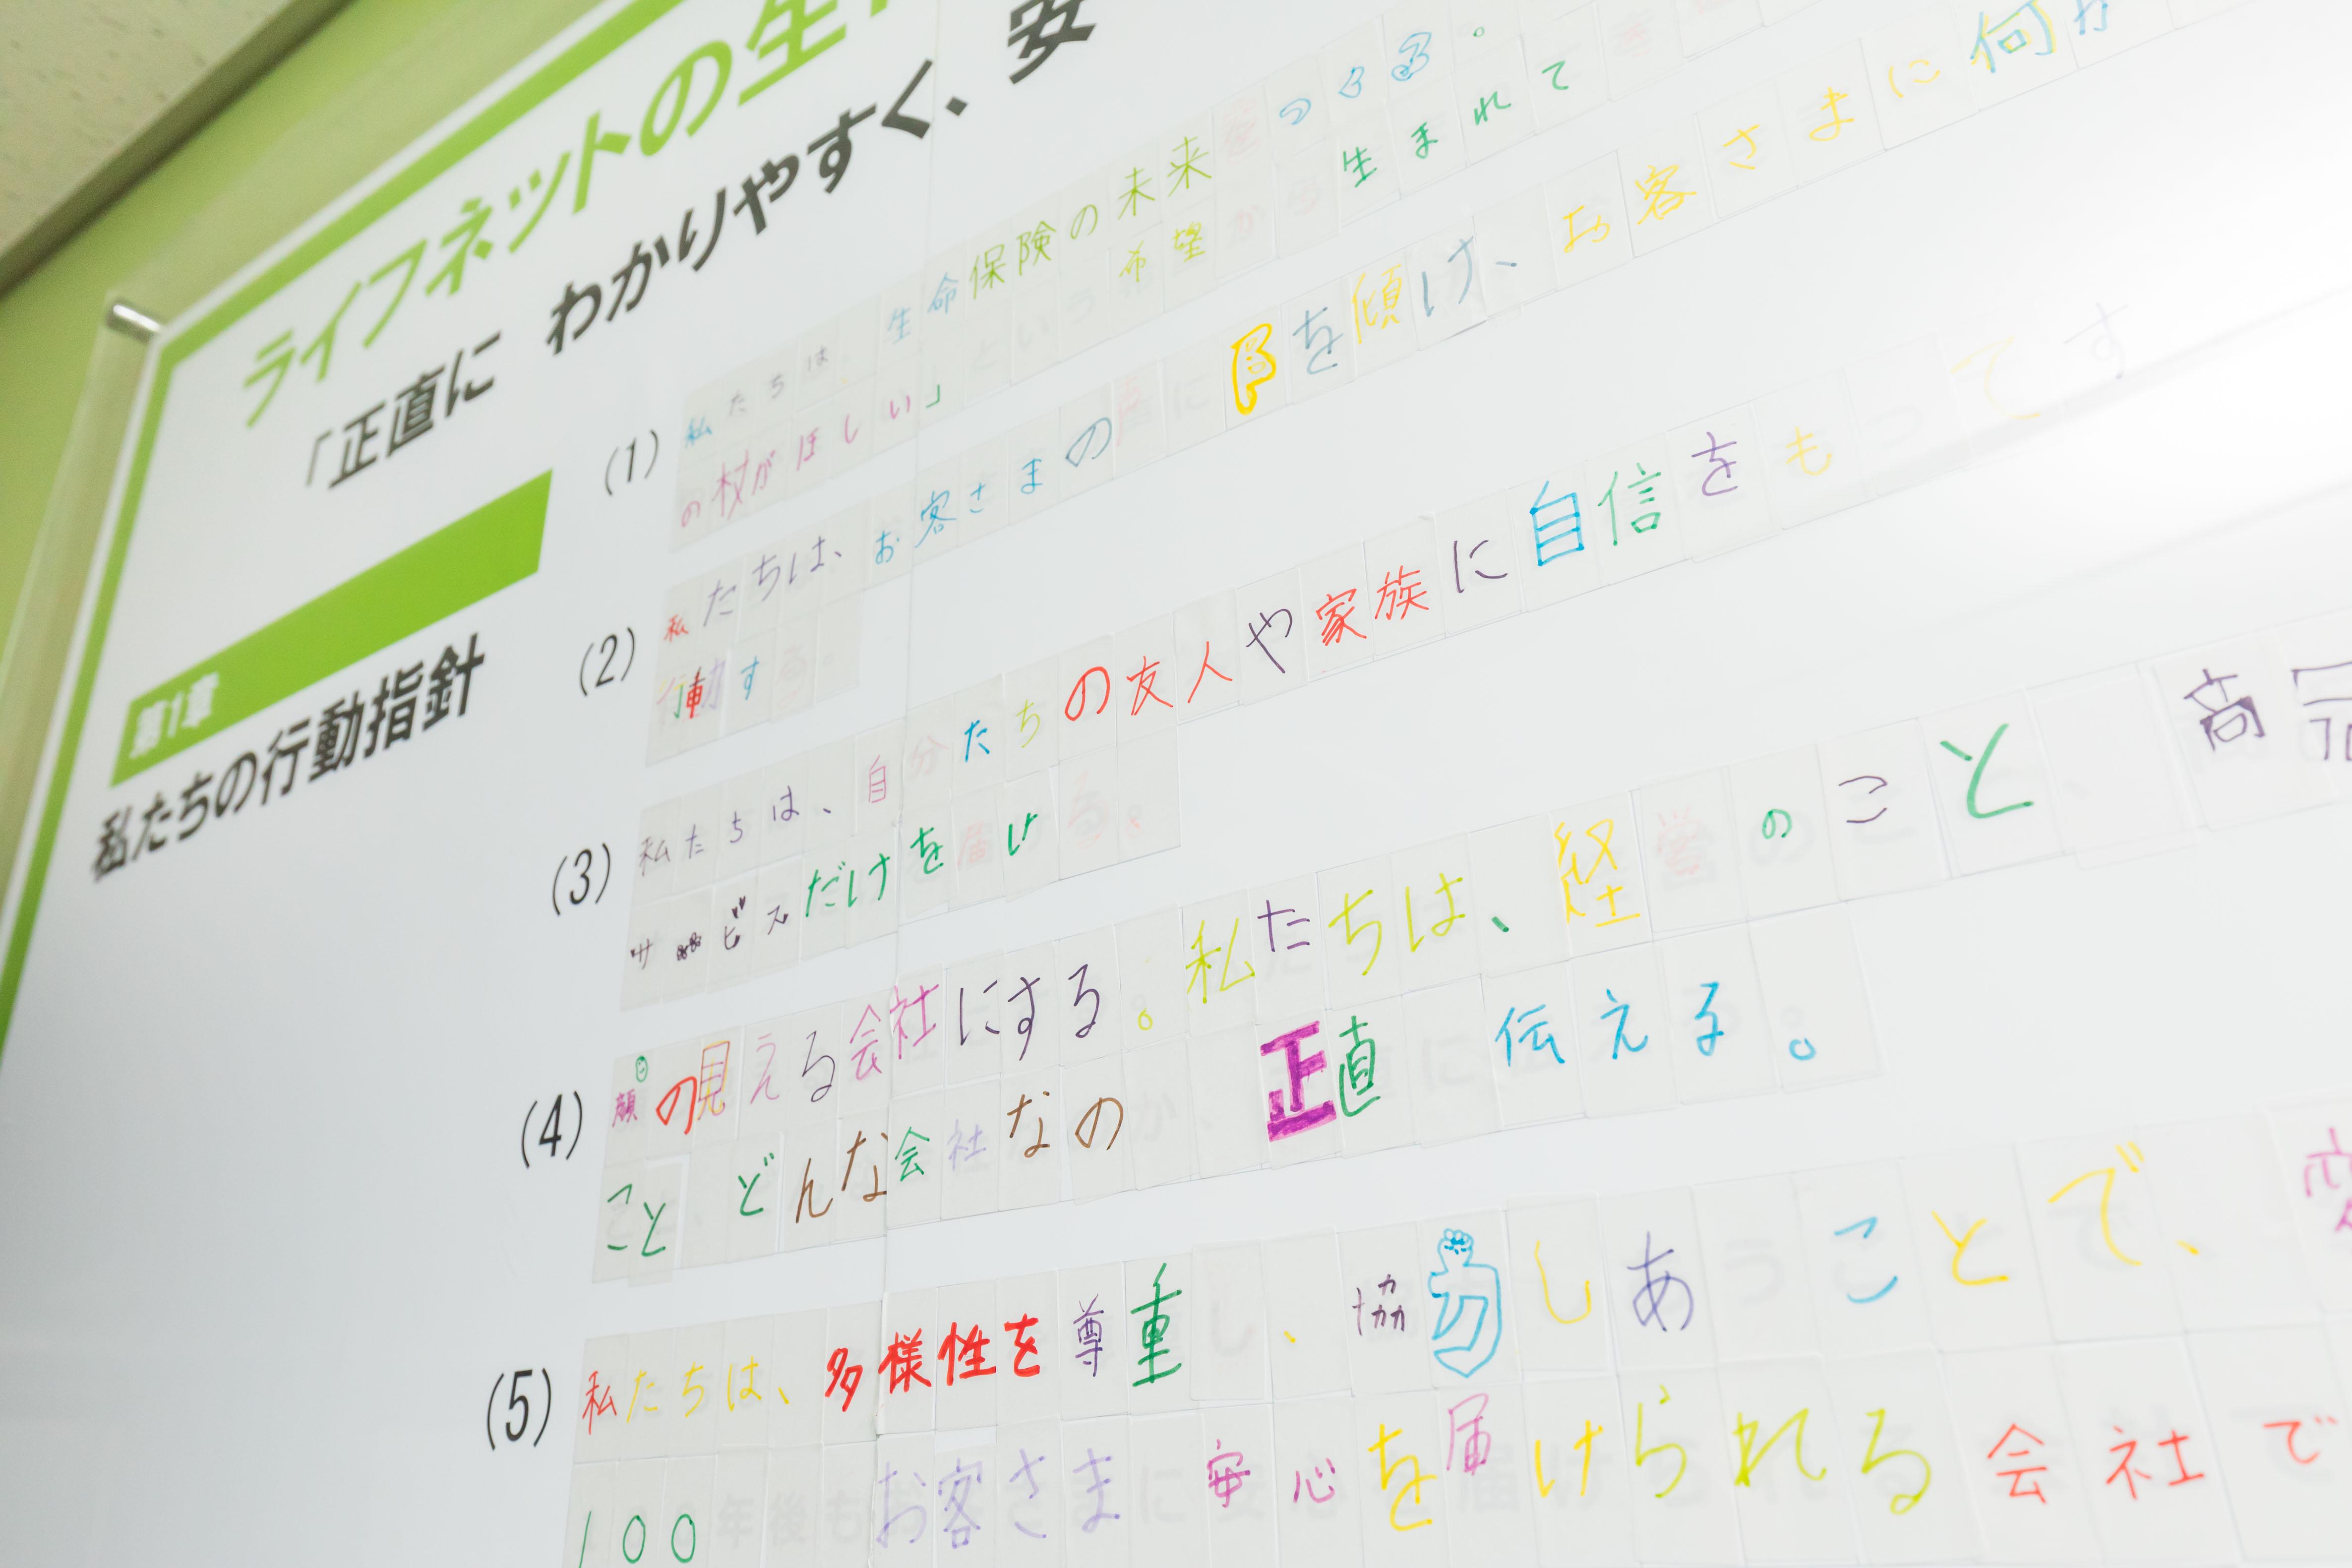 ライフネットの生
「正直に わかりやすく、安
第1章
私たちの行動指針
(1) 私たちは、生命保険の未来をつくる。
の杖がほしい」という希望から生まれて
(2) 私たちは、お客さまの声に耳を傾け、お客さまに何が
行動する。
(3) 私たちは、自分たちの友人や家族に自信をもって
サービスだけを届ける。
(4) 顔の見える会社にする。私たちは、経営のこと、商品
こと、どんな会社なのか、正直に伝える。
(5) 私たちは、多様性を尊重し、協力しあうことで、
100年後もお客さまに安心を届けられる会社で